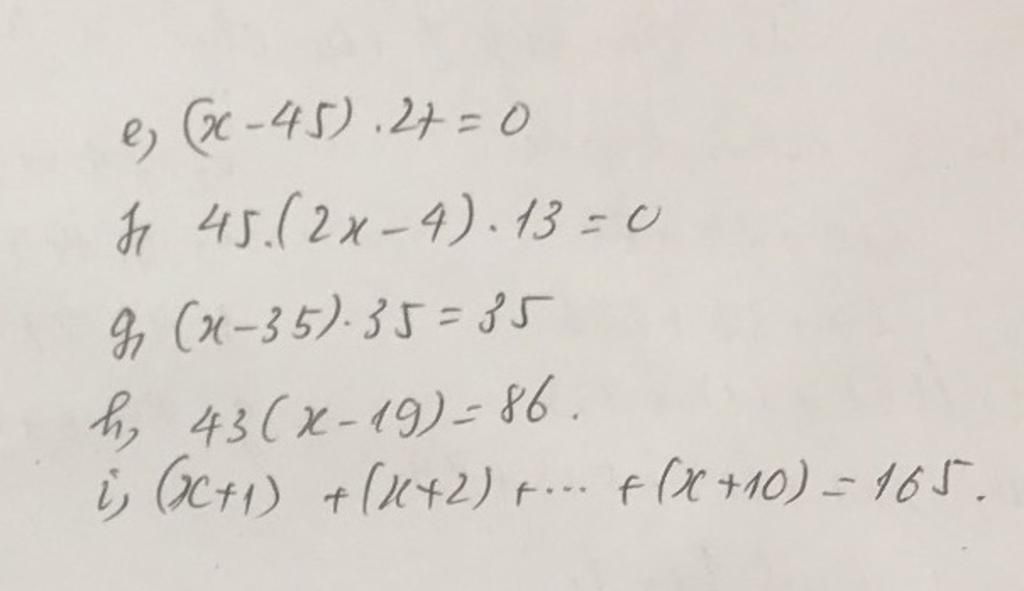 e, (x-45).27=0
f, 45.(2x-4).13=0
g, (x-35).35=35
h, 43(x-19)=86.
i, (x+1) +(x+2) +... +(x+10)=165.